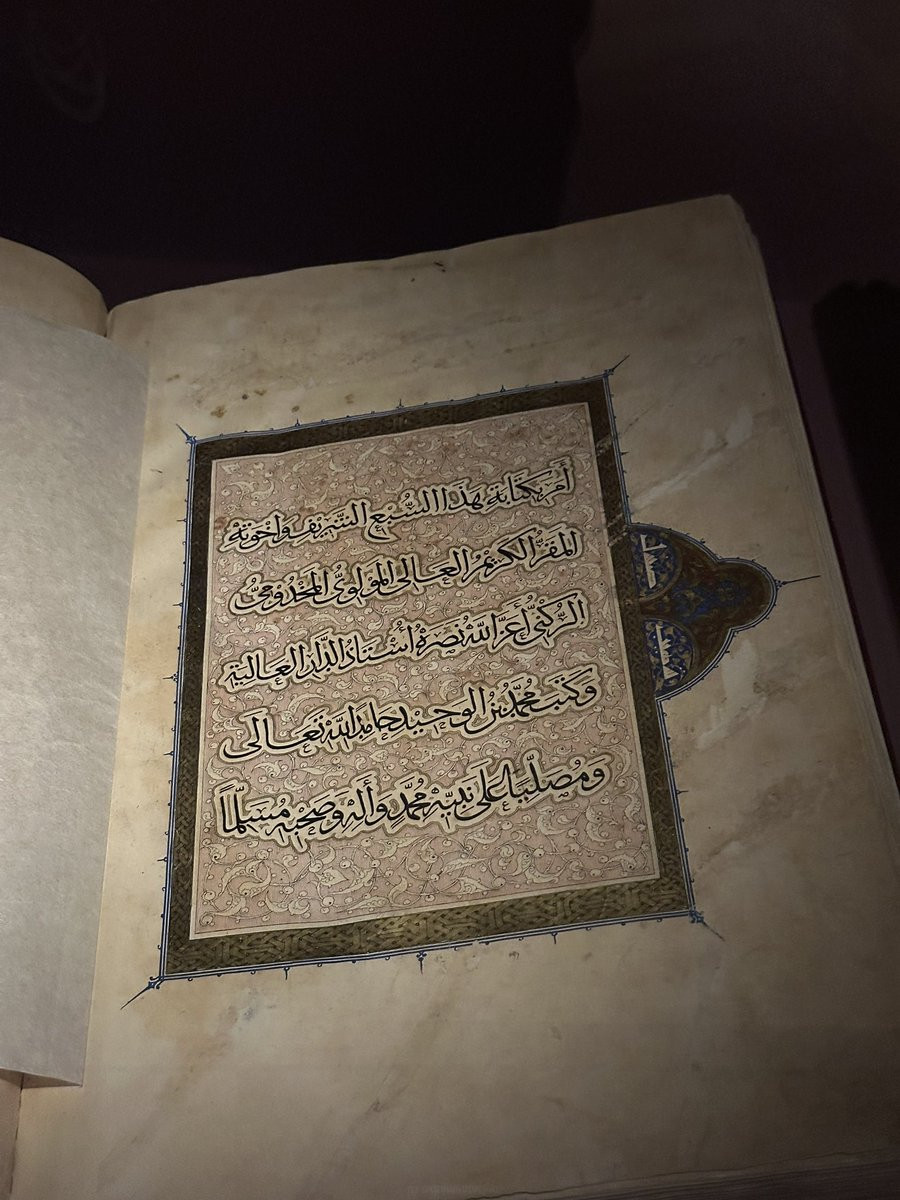 أمر بكتابة هذا السُّبع الشريف وأخوته
المقرّ الكريمُ العالي المولويُّ المخدوميُّ
الرُّكنيُّ أعزَّ اللّه نصرهُ أُستاذ الدَّار العالية
وكتب محمّد بنُ الوحيد حامدا للّه تعالى
ومُصلّيا على نبيّه محمّد وأله وصحبه مُسلّماً